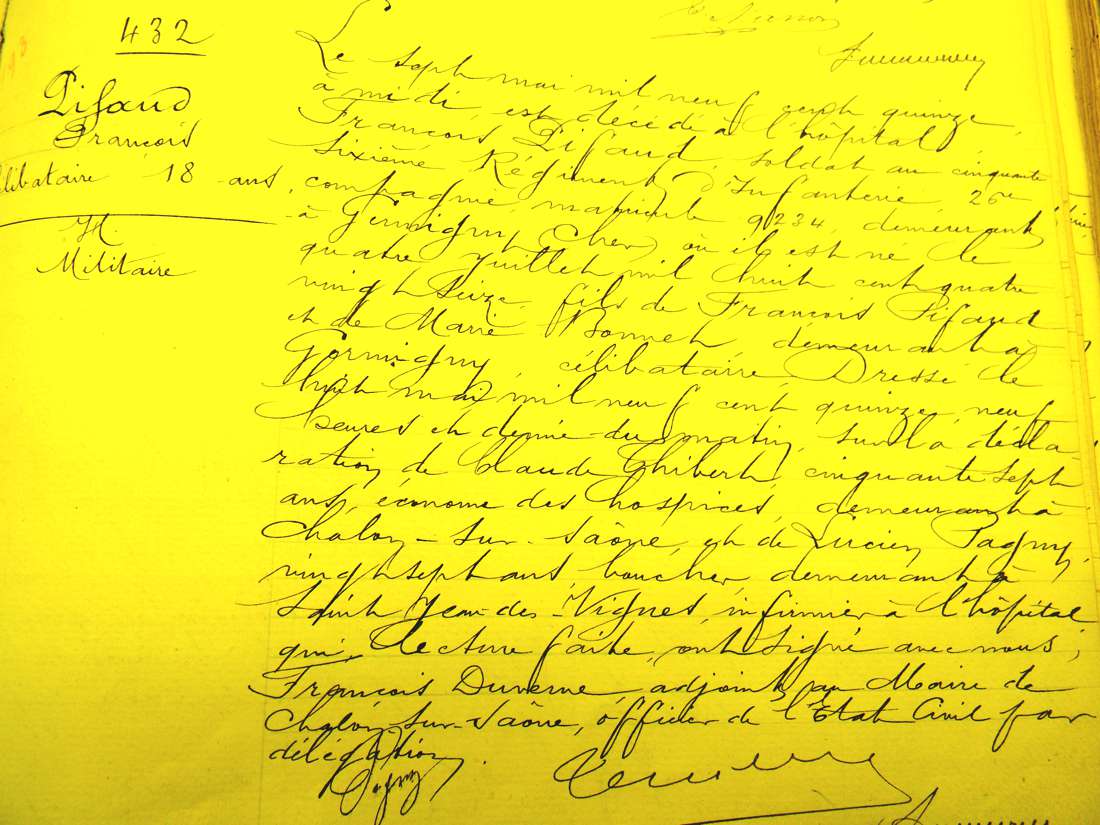 432
Pifaud
François
célibataire 18 ans
H.
Militaire
Le sept mai mil neuf cent quinze
à midi, est décédé à l'hôpital,
François Pifaud, soldat au cinquante
sixième Régiment d'Infanterie, 26me
compagnie, matricule 9234, demeurant
à Germigny, Cher, où il est né le
quatre juillet mil huit cent quatre
vingt seize, fils de François Pifaud
et de Marie Bonnet, demeurant à
Germigny, célibataire. Dressé le
huit mai mil neuf cent quinze, neuf
heures et demie du matin, sur la décla
ration de Claude Thibert, cinquante sept
ans, économe des hospices, demeurant à
Chalon-sur-Saône, et de Lucien Pagny,
vingt sept ans, boucher, demeurant à
Saint Jean-des-Vignes, infirmier à l'hôpital
qui, lecture faite, ont signé avec nous,
François Duverne, adjoint au Maire de
Chalon-sur-Saône, officier de l'Etat Civil par
délégation.
Pagny